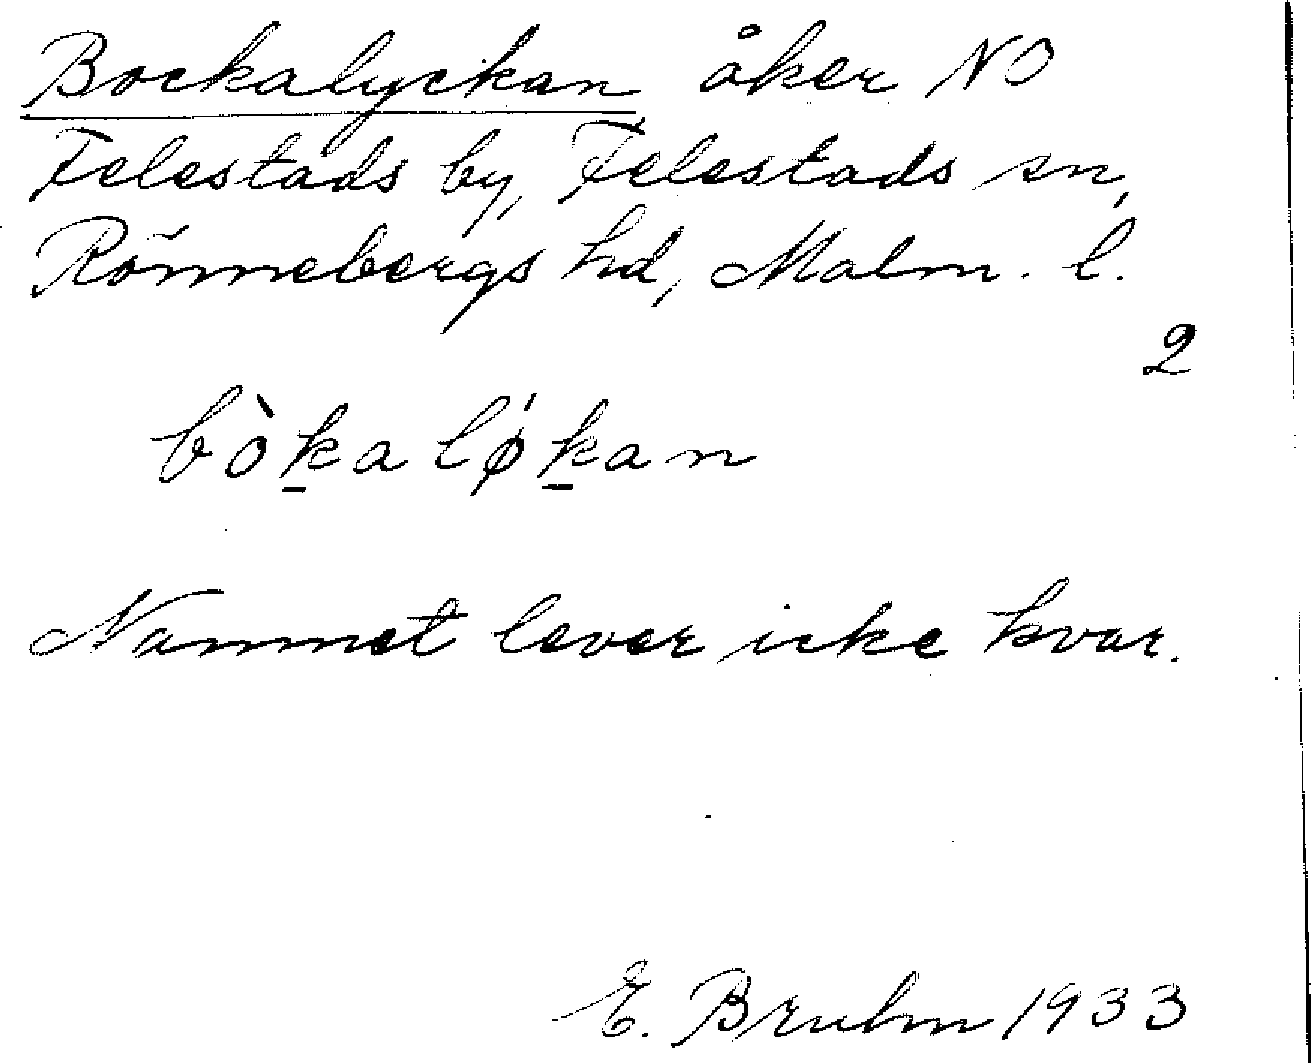 Bockalyckan åker NO
Felestads by, Felestads sn,
Rönnebergs hd, Malm. l.
2
bòk̲aløḱ̲an
Namnet lever icke kvar.
E. Bruhn 1933